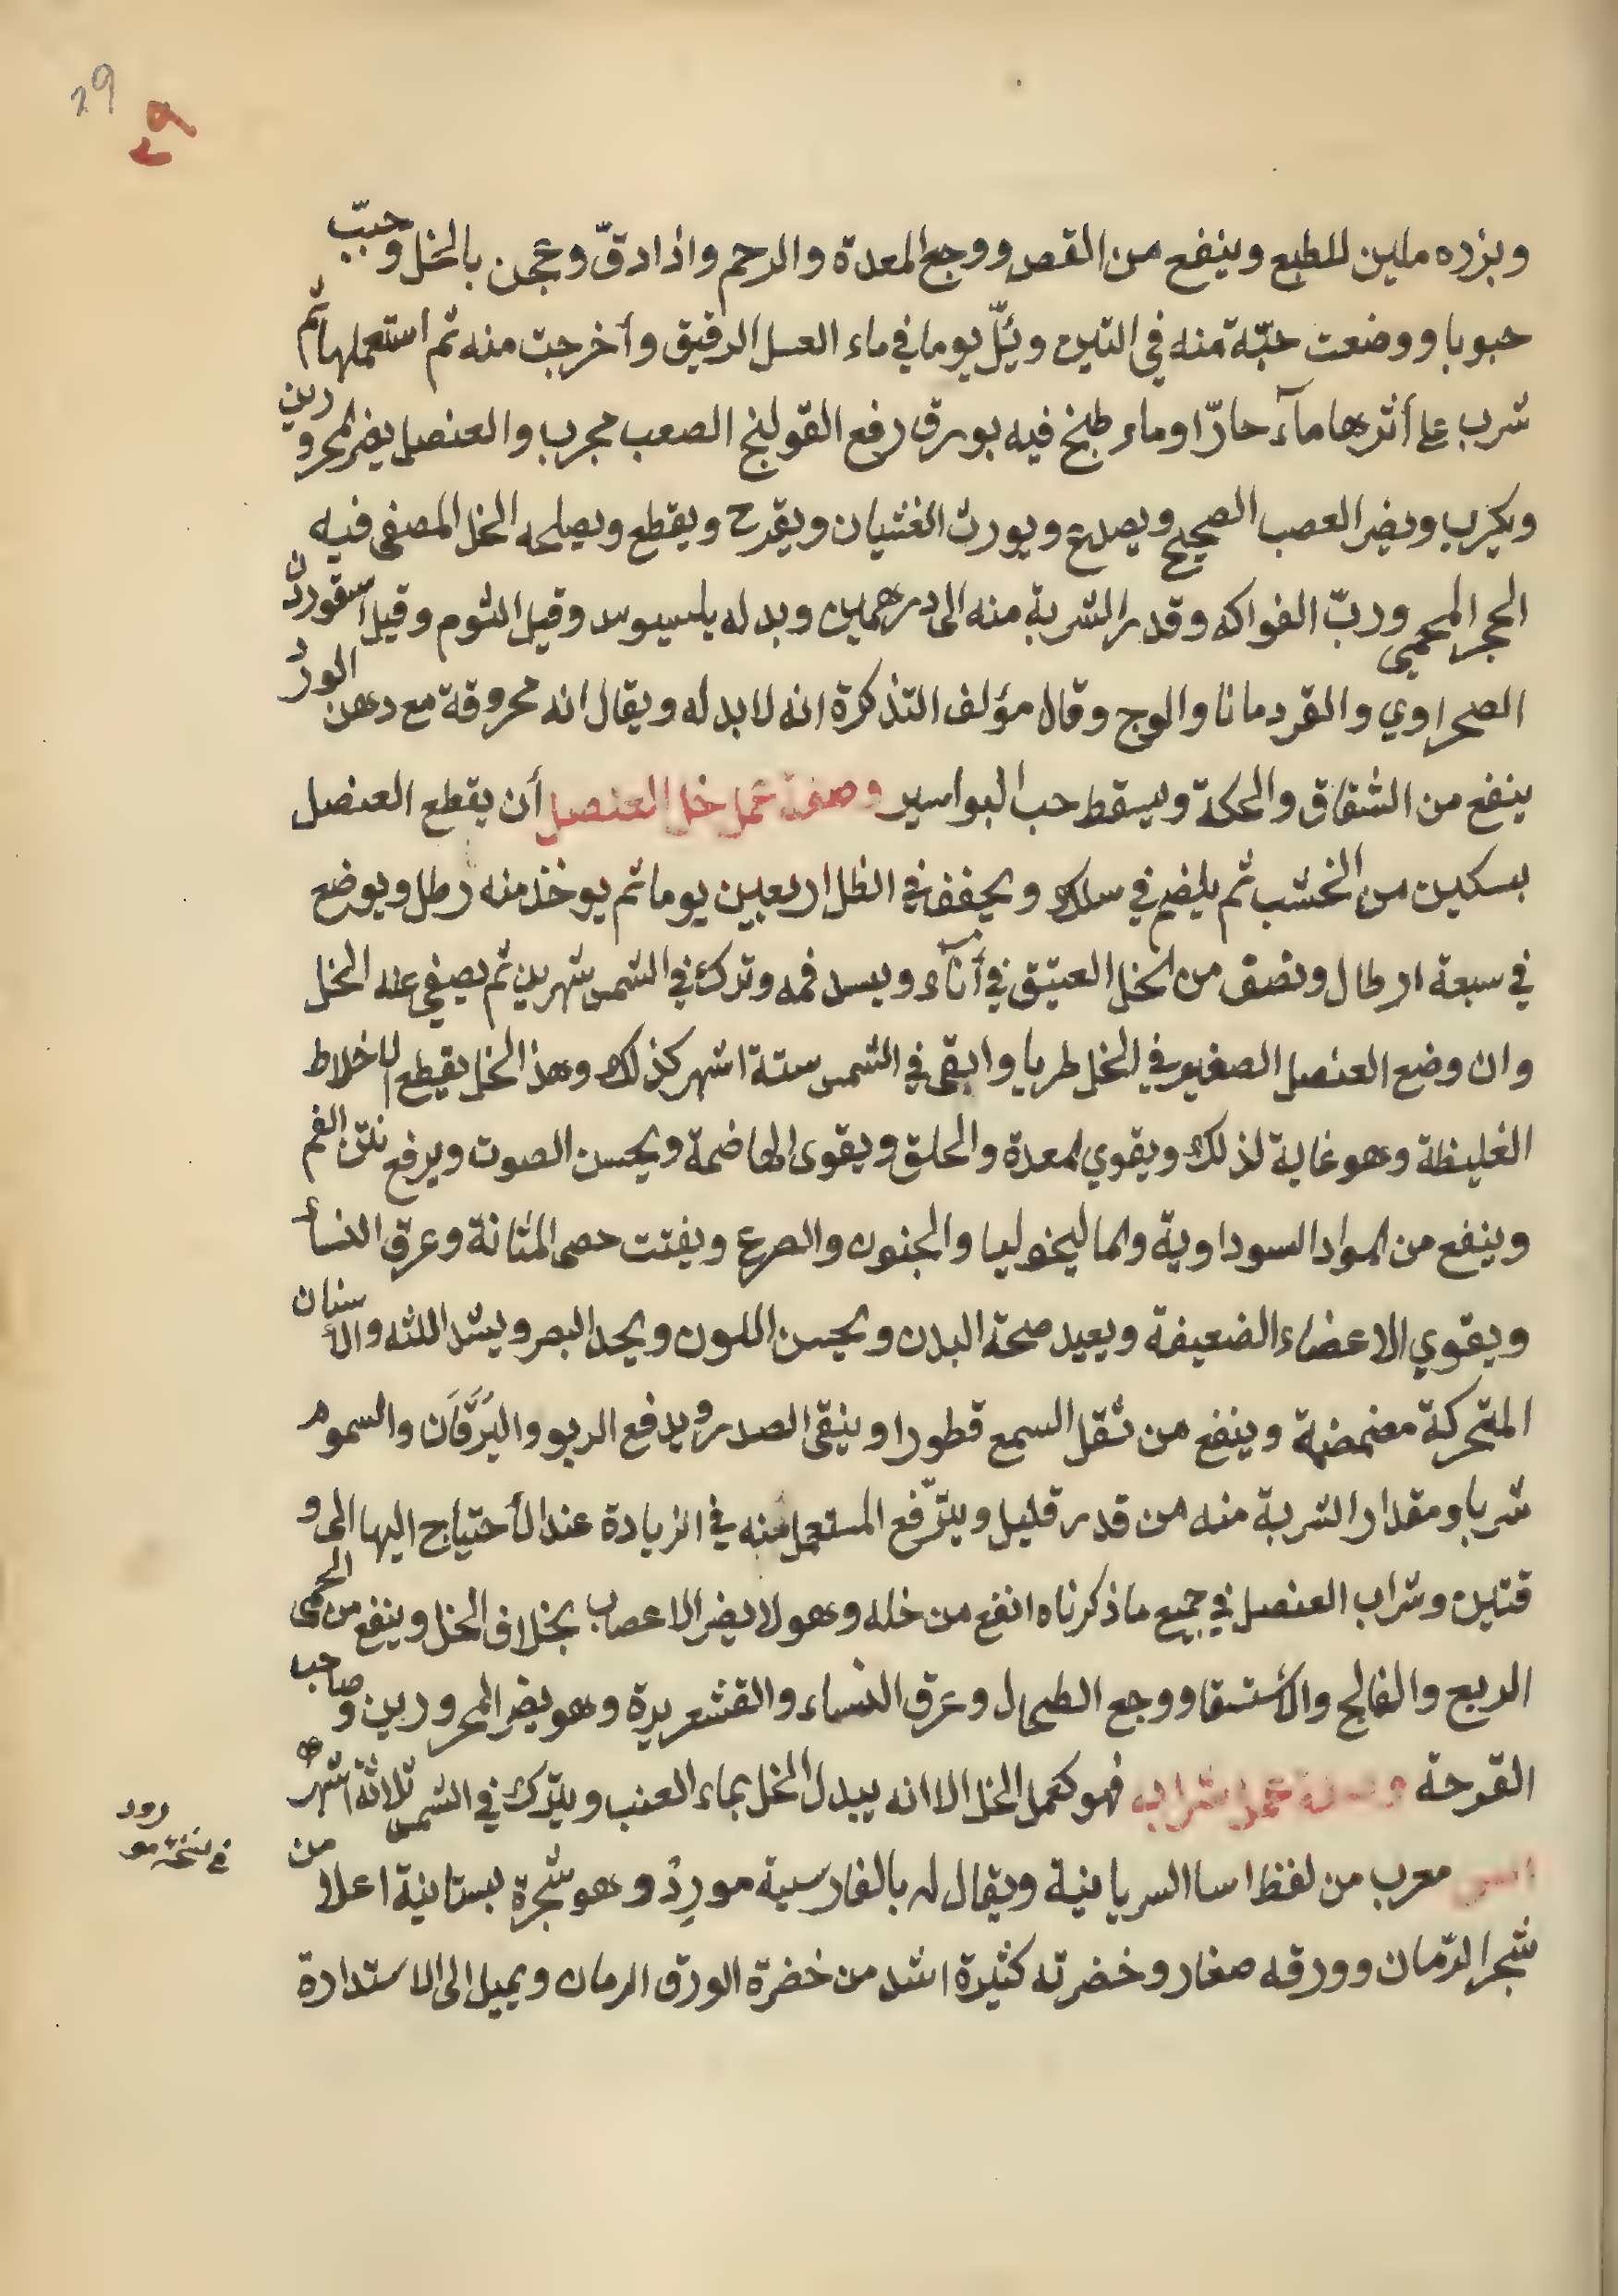 29
٢٩
وبزره ملين للطبع وينفع من القص ووجع المعدة والرحم واذا دقّ وعجن بالخل وحبّب
حبوبا ووضعت حبّة منه في التين وبُلّ يوما في ماء العسل الرقيق وأخرجت منه ثم استعملها ثم
شرب على أثرها مآء حارّا او ماء طبخ فيه بورق رفع القولنج الصعب مجرب والعنصل يضر المحرورين
ويكرب ويضر العصب الصحيح ويصدع ويورث الغثيان ويقرح ويقطع ويصلحه الخل المصفى فيه
الحجر المحمي وربّ الفواكه وقدر الشربة منه الى درهمين وبدله بلبوس وقيل الثوم وقيل اسقوردن
الصحراوي والقردمانا والوج وقال مؤلف التذكرة انه لا بد له ويقال انه محروقة مع دهن الورد
ينفع من الشقاق والحكة ويسقط حب البواسير وصفة عمل خل العنصل أن يقطع العنصل
بسكين من الخشب ثم يليضم في سلك ويجفف في الظل اربعين يوما ثم يوخذ منه رطل ويوضع
في سبعة ارطال ونصف من الخل العتيق في أناء ويسد فمه وترك في الشمس شهرين ثم يصفى عنه الخل
وان وضع العنصل الصغير في الخل طريا وابقى في الشمس ستة اشهر كذلك وهذ الخل يقطع الاخلاط
الغليظة وهو غاية لذلك ويقوي لمعدة والحلق ويقوى الهاضمة ويحسن الصوت ويرفع نتن الفم
وينفع من المواد السوداوية والماليخوليا والجنون والصرع ويفتت حصى المثانة وعرق النسأ
ويقوي الاعضاء الضعيفة ويعيد صحة البدن ويحسن اللون ويحد البصر ويشد اللثه والأسنان
المتحركة مضمضة وينفع من ثقل السمع قطورا وينقى الصدر ويدفع الربو واليَرَقَان والسموم
شربا ومقدار الشربة منه من قدر قليل ويترّفع المستعمل منه في الزيادة عند الأحتياج اليها الى و
قتين وشراب العنصل في جميع ما ذكرناه انفع من خله وهو لا يضر الاعصاب بخلاف الخل وينفع من الحمى
الربع والفالج والأستسقا ووجع الطحال وعرق النساء والقشعريرة وهو يضر المحرورين وصاحب
القرحة وصفة عمل شرابه فهو كعمل الخل الا انه يبدل الخل بماء العنب ويترك في الشمس ثلاثة اشهر
اسى معرب من لفظ اسا السريانية ويقال له بالفارسية موردُ وهو شجرة بستانية اعلا من
شجر الرّمان وورقه صغار وخضرته كثيرة اشد من خضرة الورق الرمان ويميل الى الاستدارة
رود
في نسخة مو